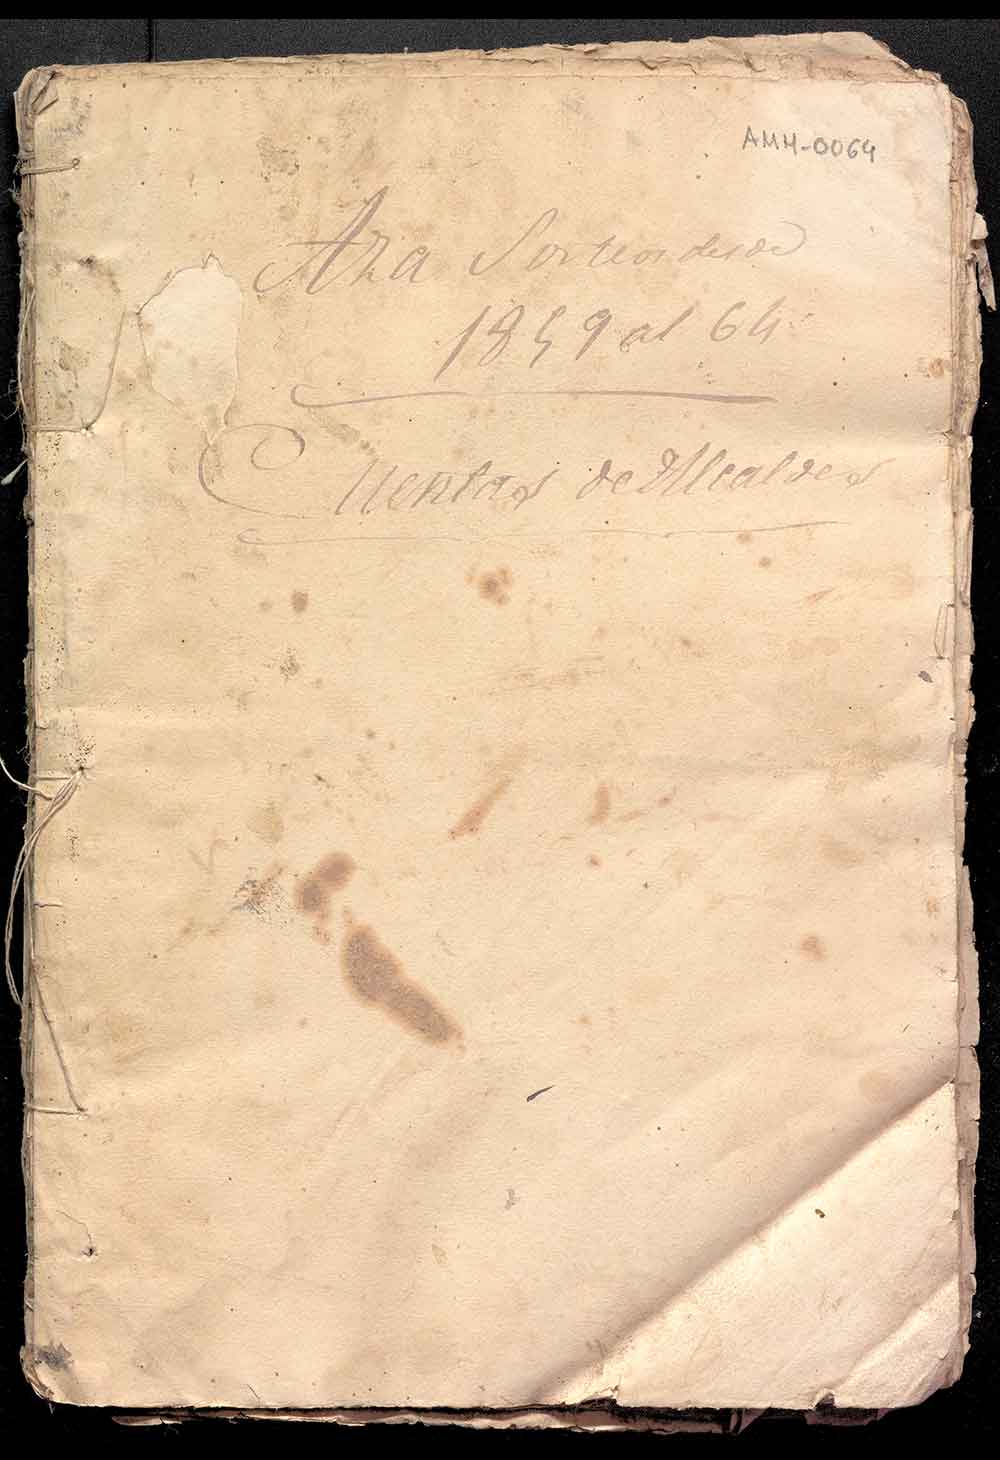 AMH-0064
Aza Sorteos desde
1859 al 64
Cuentas de Alcaldes